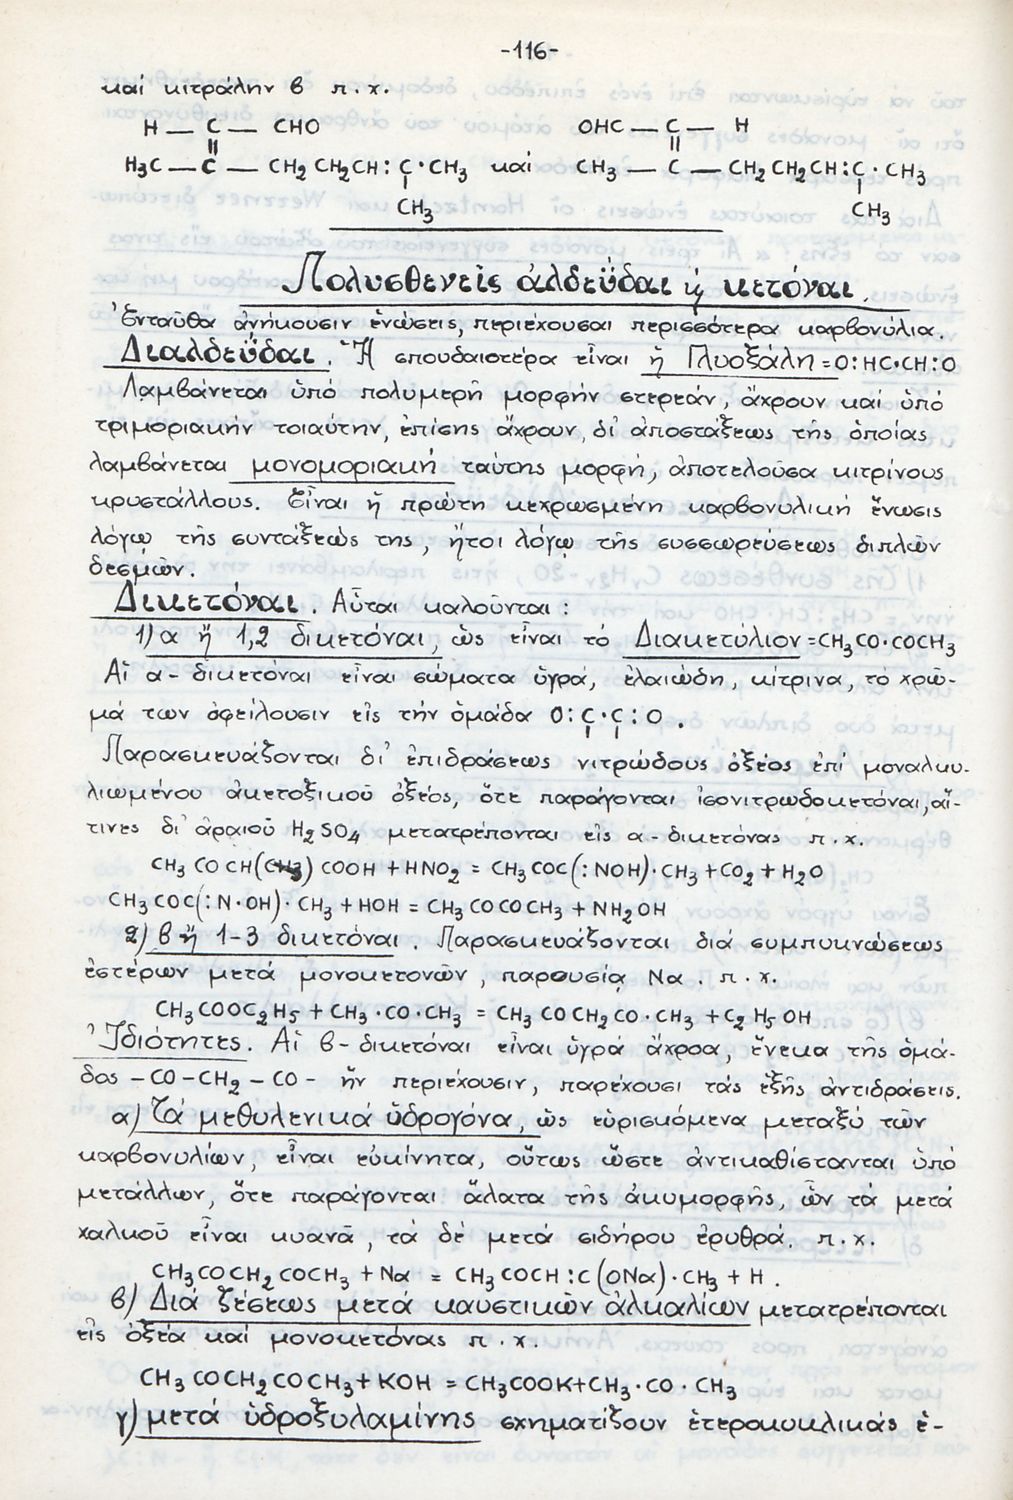 -116-
καί κιτράλην β π.χ.
H — C — CHO OHC — C — H
H3C — C — CH2 CH2CH : C·CH3 καί CH3 — C — CH2 CH2CH : C·CH3
CH3 CH3
Πολυσθενεῖς ἀλδεΰδαι ἤ κετόναι.
Ἐνταῦθα ἀνήκουσιν ἑνώσεις, περιέχουσαι περισσότερα καρβονύλια.
Διαλδεΰδαι. Ἡ σπουδαιοτέρα εἶναι ἡ Γλυοξάλη = O:HC·CH:O
Λαμβάνεται ὑπό πολυμερῆ μορφήν στερεάν, ἄχρουν καί ὑπό
τριμοριακήν τοιαύτην, ἐπίσης ἄχρουν, δι' ἀποστάξεως τῆς ὁποίας
λαμβάνεται μονομοριακή ταύτης μορφή, ἀποτελοῦσα κιτρίνους
κρυστάλλους. Εἶναι ἡ πρώτη κεχρωσμένη καρβονυλική ἕνωσις
λόγῳ τῆς συντάξεώς της, ἤτοι λόγῳ τῆς συσσωρεύσεως διπλῶν
δεσμῶν.
Δικετόναι. Αὗται καλοῦνται :
1) α ἤ 1,2 δικετόναι, ὡς εἶναι τό Διακετύλιον = CH3CO·COCH3
Αἱ α-δικετόναι εἶναι σώματα ὑγρά, ἐλαιώδη, κίτρινα, τό χρῶ-
μά των ὀφείλουσιν εἰς τήν ὁμάδα O:C·C:O.
Παρασκευάζονται δι' ἐπιδράσεως νιτρώδους ὀξέος ἐπί μοναλκυ-
λιωμένου ἀκετοξικοῦ ὀξέος, ὅτε παράγονται ἰσονιτρωδοκετόναι, αἵ-
τινες δι' ἀραιοῦ H2SO4 μετατρέπονται εἰς α-δικετόνας π.χ.
CH3 CO CH(CH3) COOH + HNO2 = CH3 COC(:NOH)·CH3 + CO2 + H2O
CH3 COC(:N·OH)·CH3 + HOH = CH3 CO CO CH3 + NH2OH
2) β ἤ 1-3 δικετόναι. Παρασκευάζονται διά συμπυκνώσεως
ἐστέρων μετά μονοκετονῶν, παρουσίᾳ Να. π.χ.
CH3 COOC2H5 + CH3·CO·CH3 = CH3 CO CH2 CO·CH3 + C2H5OH
Ἰδιότητες. Αἱ β-δικετόναι εἶναι ὑγρά ἄχροα, ἕνεκα τῆς ὁμά-
δος -CO-CH2-CO- ἥν περιέχουσιν, παρέχουσι τάς ἑξῆς ἀντιδράσεις.
α) Τά μεθυλενικά ὑδρογόνα, ὡς εὑρισκόμενα μεταξύ τῶν
καρβονυλίων, εἶναι εὐκίνητα, οὕτως ὥστε ἀντικαθίστανται ὑπό
μετάλλων, ὅτε παράγονται ἅλατα τῆς ἀκυμορφῆς, ὧν τά μετά
χαλκοῦ εἶναι κυανᾶ, τά δέ μετά σιδήρου ἐρυθρά. π.χ.
CH3 CO CH2 COCH3 + Να = CH3 COCH : C(ONα)·CH3 + H.
β) Διά ζέσεως μετά καυστικῶν ἀλκαλίων μετατρέπονται
εἰς ὀξέα καί μονοκετόνας π.χ.
CH3 COCH2 COCH3 + KOH = CH3COOK + CH3·CO·CH3
γ) μετά ὑδροξυλαμίνης σχηματίζουν ἑτεροκυκλικάς ἑ-